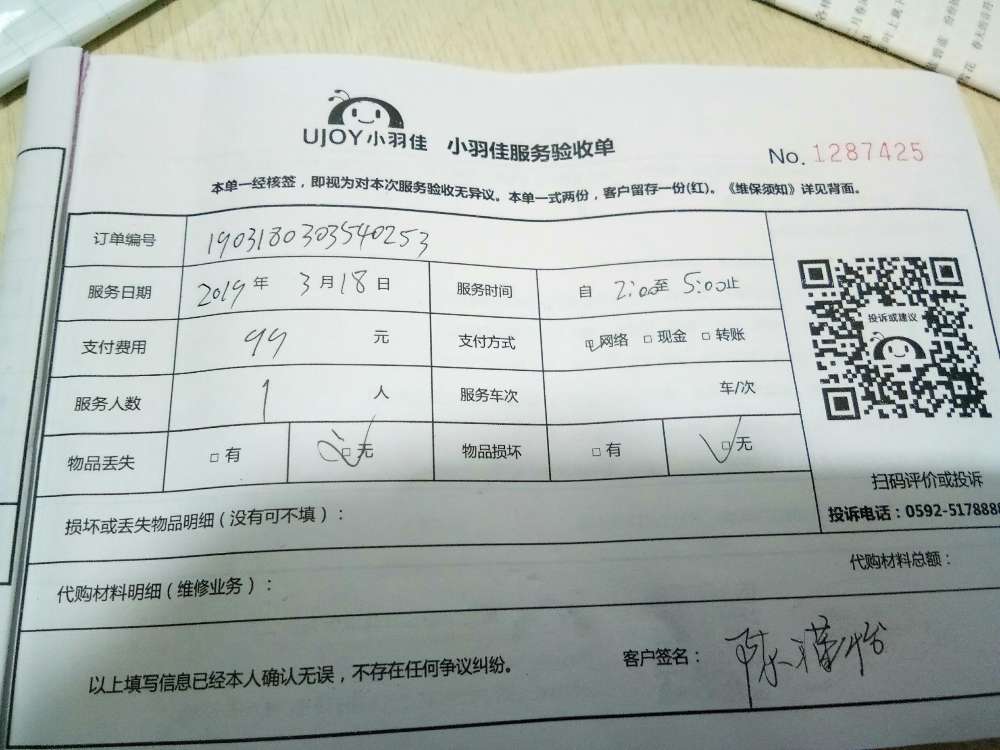 UJOY小羽佳 小羽佳服务验收单
No. 1287425
本单一经核签，即视为对本次服务验收无异议。本单一式两份，客户留存一份(红)。《维保须知》详见背面。
订单编号 190318030354​0253
服务日期 2019 年 3 月 18 日 服务时间 自 2:00 至 5:00 止
支付费用 99 元 支付方式 ☑网络 □现金 □转账
服务人数 1 人 服务车次 车/次
物品丢失 □有 ☑无 物品损坏 □有 ☑无
投诉或建议
扫码评价或投诉
投诉电话：0592-5178888
损坏或丢失物品明细（没有可不填）：
代购材料明细（维修业务）：
代购材料总额：
以上填写信息已经本人确认无误，不存在任何争议纠纷。
客户签名：